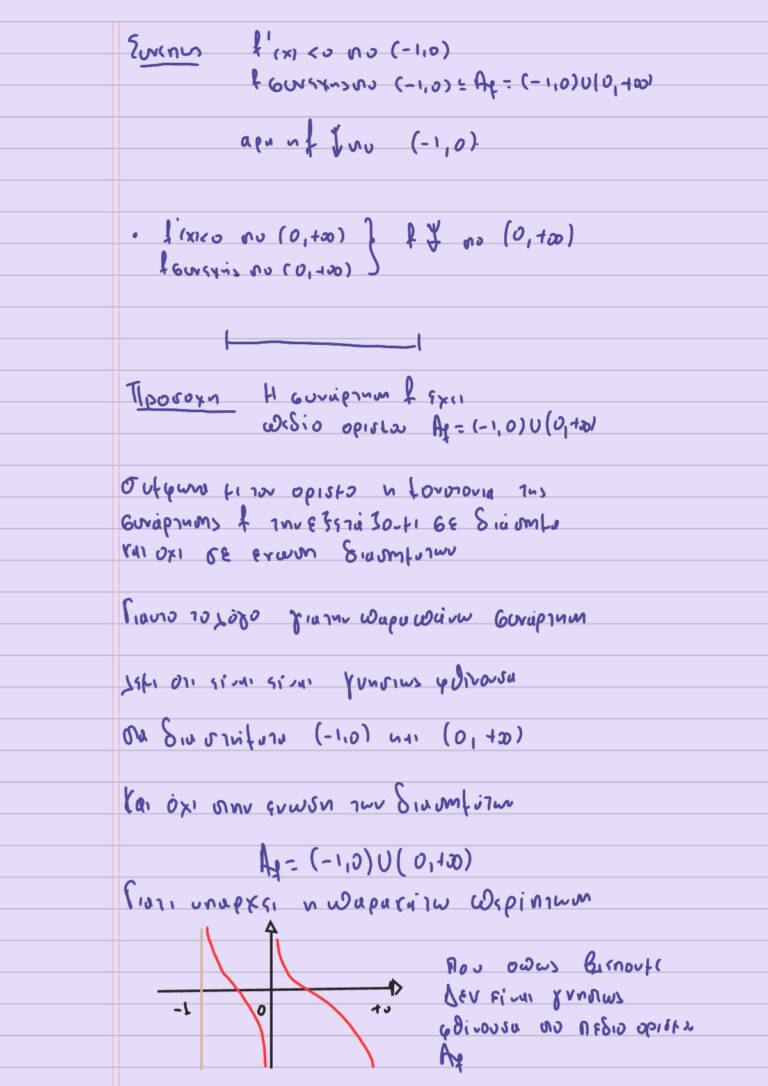 Συνεπως f'(x) <0 στο (-1,0)
f συνεχης στο (-1,0) ⊆ Af = (-1,0)∪(0,+∞)
αρα η f ↓ στο (-1,0)
• f'(x)<0 στο (0,+∞) } f ↓ στο (0,+∞)
f συνεχής στο (0,+∞)
Προσοχη Η συνάρτηση f έχει
πεδίο ορισμου Af = (-1,0)∪(0,+∞)
συμφωνα με τον ορισμο η μονοτονια της
συνάρτησης f την εξετάζουμε σε διάστημα
και οχι σε ενωση διαστημάτων
Γιαυτο το λόγο για την παραπάνω συνάρτηση
λεμε οτι είναι είναι γνησιως φθίνουσα
στα διαστήματα (-1,0) και (0,+∞)
και όχι στην ενωση των διαστημάτων
Af = (-1,0)∪(0,+∞)
Γιατι υπαρχει η παρακάτω περίπτωση
που οπως βλεπουμε
-1 0 +∞
Δεν είναι γνησιως
φθίνουσα στο πεδιο ορισμου
Af